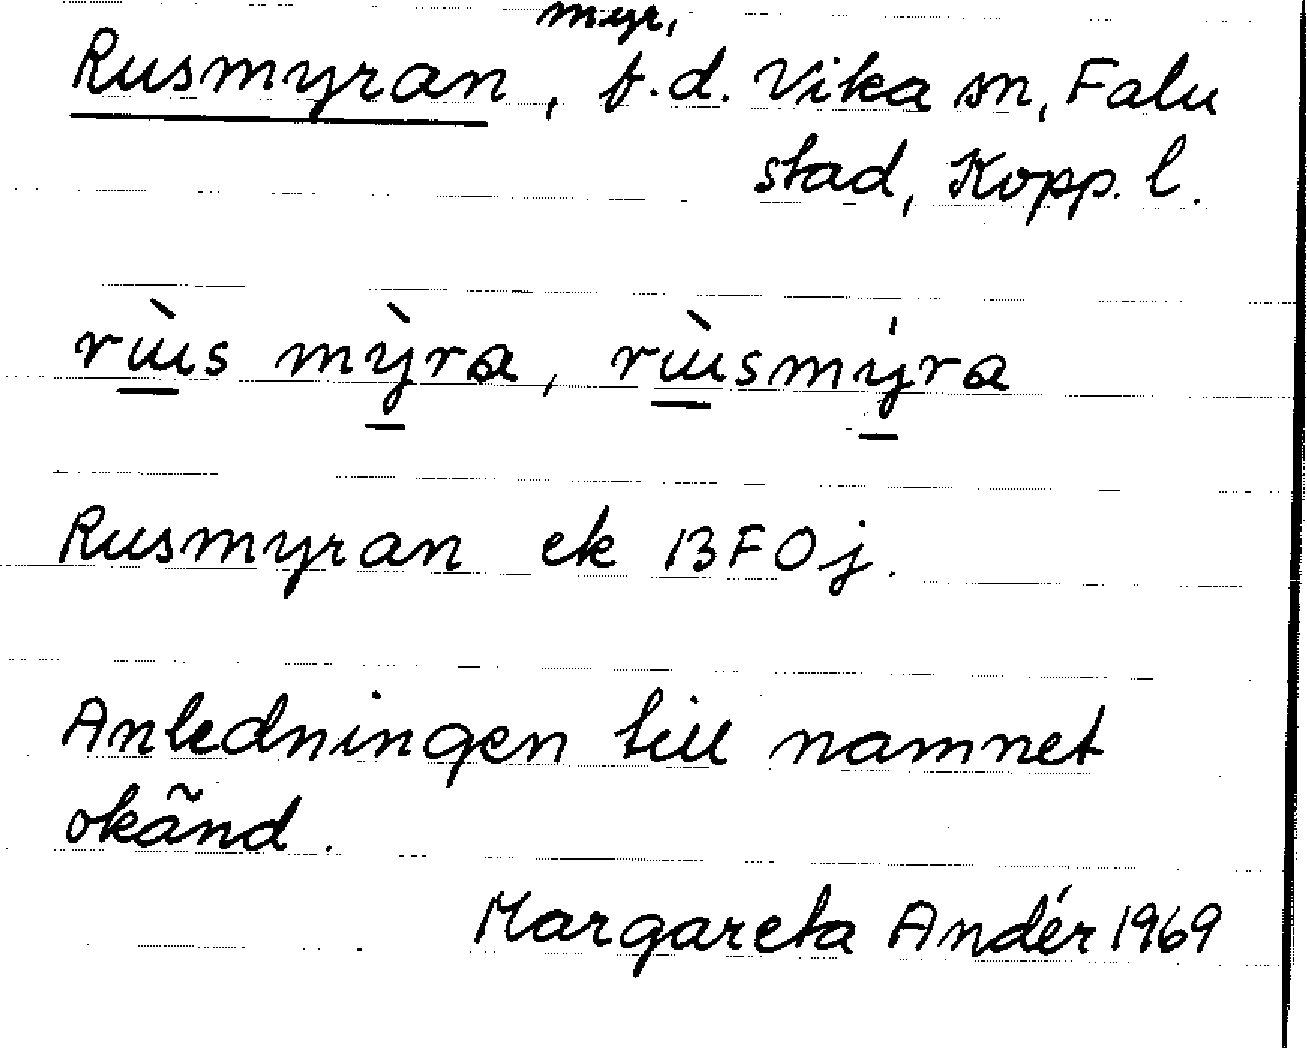 myr,
Rusmyran, f.d. Vika sn, Falu
stad, Kopp. l.
rɯ̀s mỳra, rɯ̀smýra
Rusmyran ek BFOj.
Anledningen till namnet
okänd.
Margareta Andér 1969